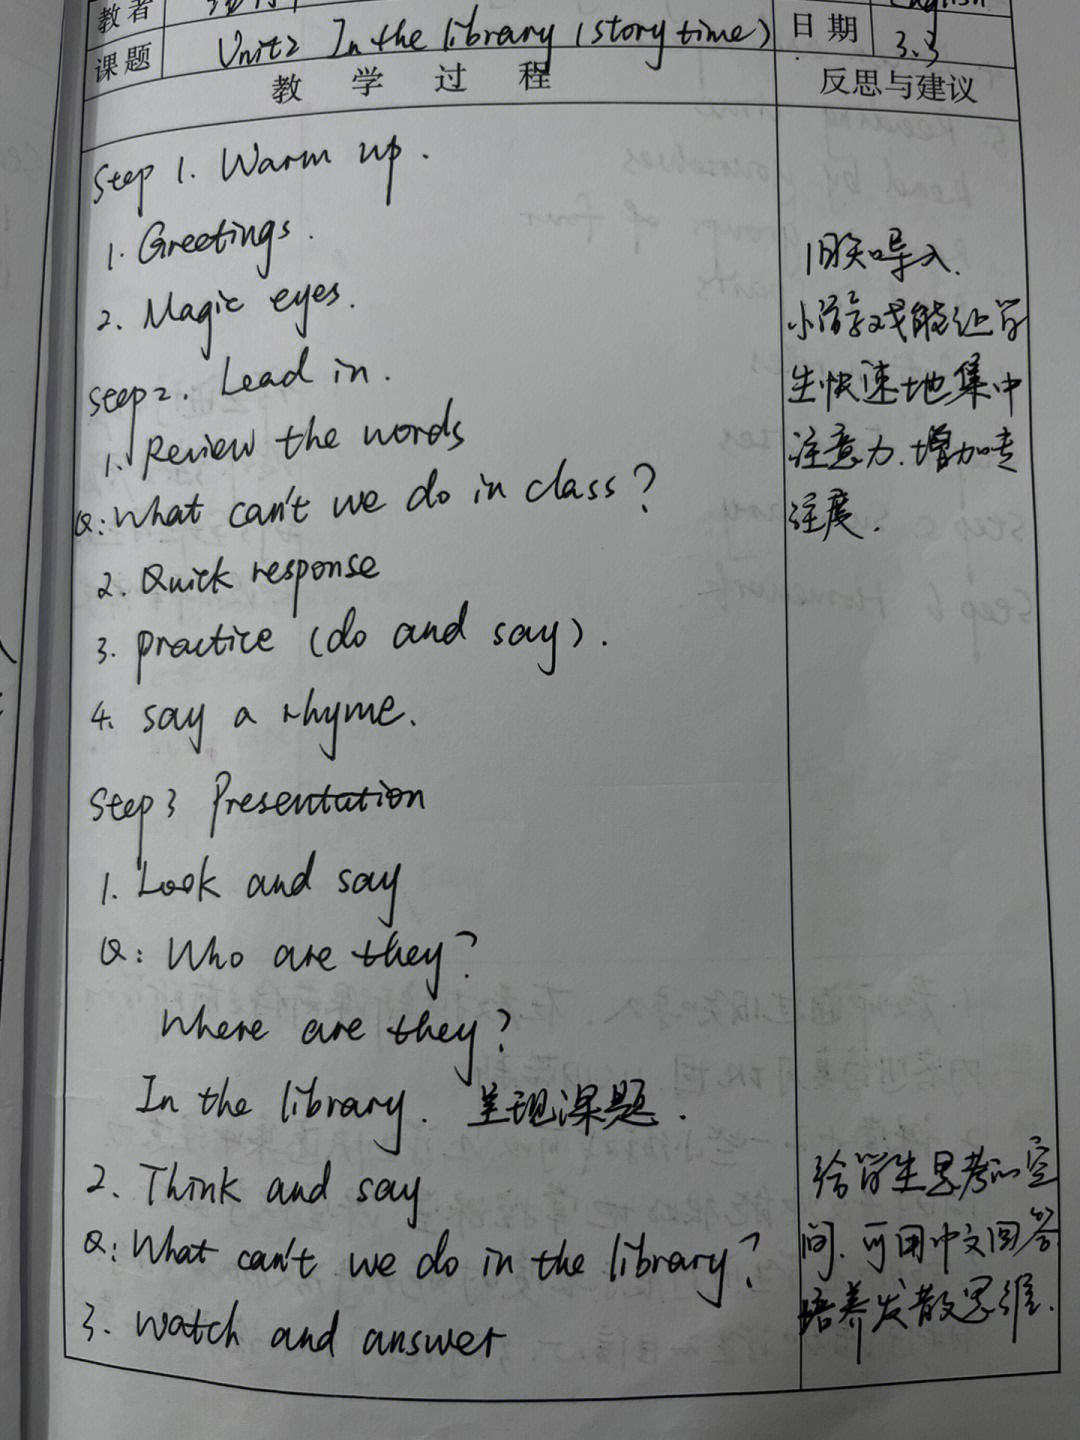 教者
English
课题 Unit2 In the library (story time) 日期 3.3
教学过程 反思与建议
Step 1. Warm up.
1. Greetings.
2. Magic eyes.
Step2. Lead in.
1. Review the words
Q: What can't we do in class?
2. Quick response
3. practice (do and say).
4. say a rhyme.
Step3 Presentation
1. Look and say
Q: Who are they?
Where are they?
In the library. 呈现课题.
2. Think and say
Q: What can't we do in the library?
3. watch and answer
旧知导入.
小游戏能让学
生快速地集中
注意力.增加专
注度.
给学生思考的空
间.可用中文回答
培养发散思维.